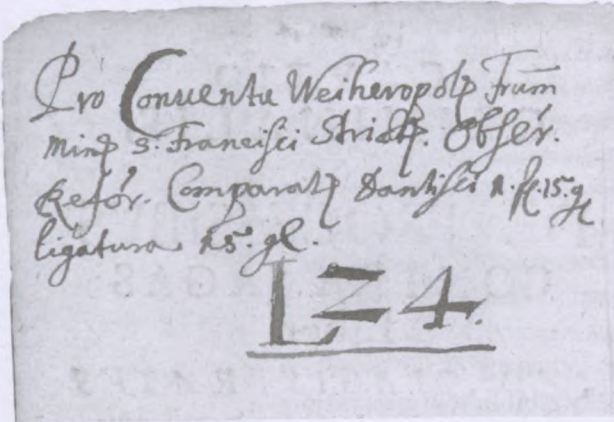 Pro Conventu Weiheropolꝭ Frum̄
Minꝭ S. Francisci Strictꝭ. Obser.
Refor. Comparatꝭ Dantisci fl. 15. g
ligatura 25. gl.
LZ4.